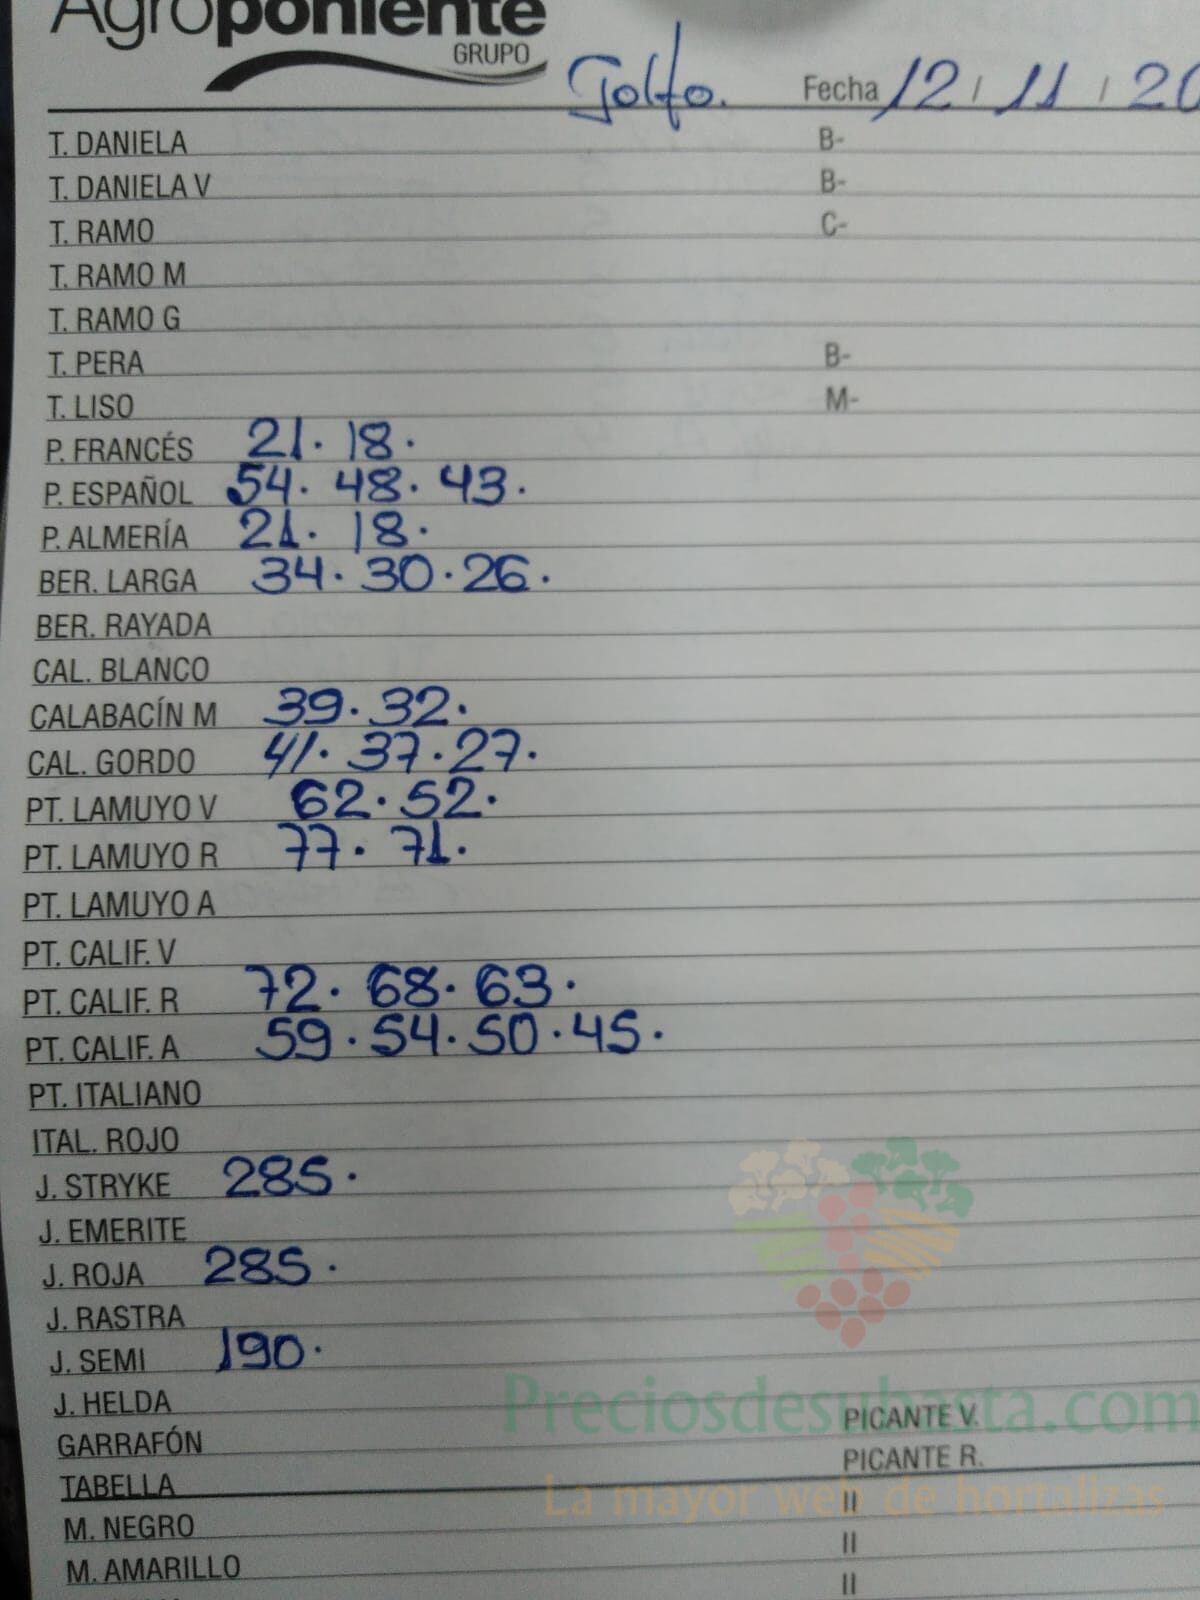 Agroponiente
GRUPO
Golfo. Fecha 12 / 11 / 20
T. DANIELA B-
T. DANIELA V B-
T. RAMO C-
T. RAMO M
T. RAMO G
T. PERA B-
T. LISO M-
P. FRANCÉS 21. 18.
P. ESPAÑOL 54. 48. 43.
P. ALMERÍA 21. 18.
BER. LARGA 34. 30. 26.
BER. RAYADA
CAL. BLANCO
CALABACÍN M 39. 32.
CAL. GORDO 41. 37. 27.
PT. LAMUYO V 62. 52.
PT. LAMUYO R 77. 71.
PT. LAMUYO A
PT. CALIF. V
PT. CALIF. R 72. 68. 63.
PT. CALIF. A 59. 54. 50. 45.
PT. ITALIANO
ITAL. ROJO
J. STRYKE 285.
J. EMERITE
J. ROJA 285.
J. RASTRA
J. SEMI 190.
J. HELDA
Preciosdesubasta.com
PICANTE V.
GARRAFÓN
PICANTE R.
TABELLA
La mayor web de hortalizas
II
M. NEGRO
II
M. AMARILLO
II